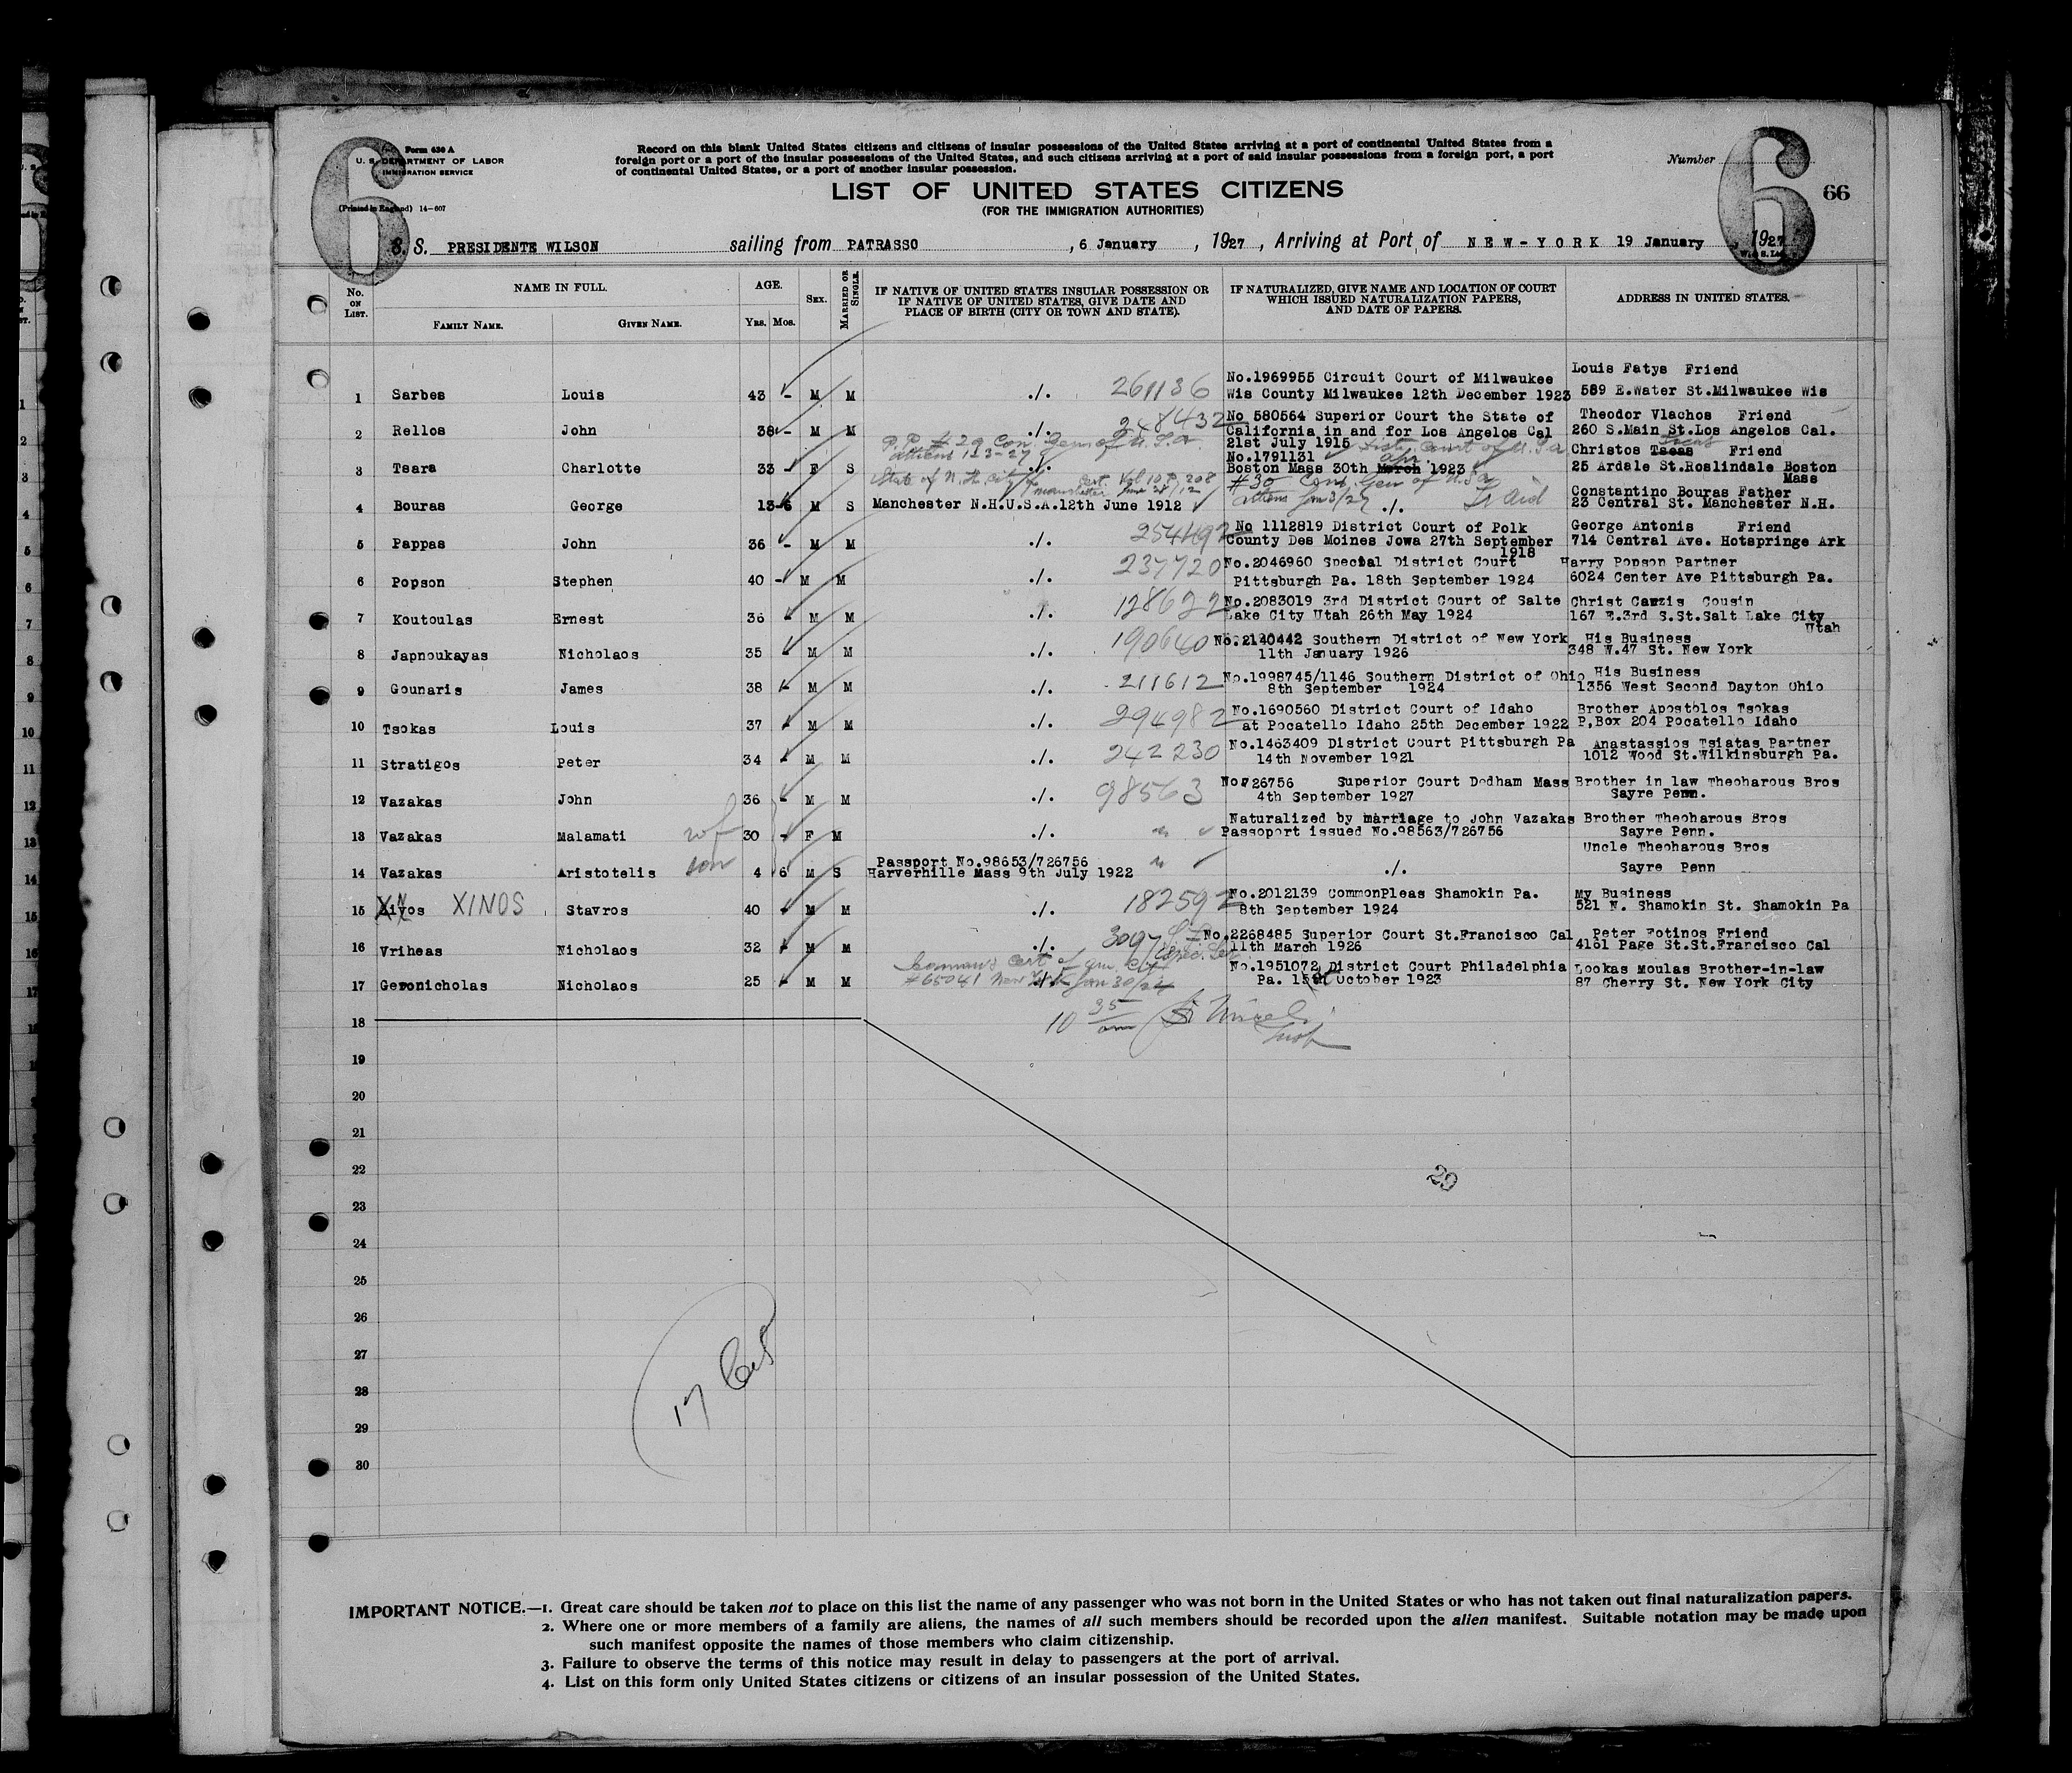 6
6
Form 630 A
U. S. DEPARTMENT OF LABOR
IMMIGRATION SERVICE
(Printed in England) 14-607
Record on this blank United States citizens and citizens of insular possessions of the United States arriving at a port of continental United States from a
foreign port or a port of the insular possessions of the United States, and such citizens arriving at a port of said insular possessions from a foreign port, a port
of continental United States, or a port of another insular possession.
Number
66
LIST OF UNITED STATES CITIZENS
(FOR THE IMMIGRATION AUTHORITIES)
S. S. PRESIDENTE WILSON sailing from PATRASSO , 6 January , 1927 , Arriving at Port of NEW-YORK 19 January , 1927
No. ON LIST.
NAME IN FULL.
FAMILY NAME.
GIVEN NAME.
AGE.
YRS. MOS.
SEX.
MARRIED OR SINGLE.
IF NATIVE OF UNITED STATES INSULAR POSSESSION OR
IF NATIVE OF UNITED STATES, GIVE DATE AND
PLACE OF BIRTH (CITY OR TOWN AND STATE).
IF NATURALIZED, GIVE NAME AND LOCATION OF COURT
WHICH ISSUED NATURALIZATION PAPERS,
AND DATE OF PAPERS.
ADDRESS IN UNITED STATES.
1 Sarbes Louis 43 - M M ./. 261136
No.1969955 Circuit Court of Milwaukee
Wis County Milwaukee 12th December 1923
Louis Fatys Friend
589 E.Water St.Milwaukee Wis
2 Rellos John 38 - M M ./. 248432
No 580564 Superior Court the State of
California in and for Los Angelos Cal
21st July 1915
Theodor Vlachos Friend
260 S.Main St.Los Angelos Cal.
3 Tsara Charlotte 33 - F S ./.
P.P. #29 Con. Gen of U.S.A.
Athens 1-3-27
No.1791131 Dist. Court of U.S.A
Boston Mass 30th March Apr. 1923
Christos Tseas Friend
25 Ardale St.Roslindale Boston
Mass
4 Bouras George 13-6 M S
State of N.H. City of Manchester Cert. Vol 10 P. 208 June 28/12
Manchester N.H.U.S.A.12th June 1912
#30 Con. Gen of U.S.A
Athens Jan 3/27 ./.
Constantino Bouras Father
23 Central St. Manchester N.H.
5 Pappas John 36 - M M ./. 254492
No 1112819 District Court of Polk
County Des Moines Jowa 27th September
1918
George Antonis Friend
714 Central Ave. Hotspringe Ark
6 Popson Stephen 40 - M M ./. 237720
No.2046960 Special District Court
Pittsburgh Pa. 18th September 1924
Harry Popson Partner
6024 Center Ave Pittsburgh Pa.
7 Koutoulas Ernest 36 - M M ./. 128622
No.2083019 3rd District Court of Salte
Lake City Utah 26th May 1924
Christ Carzis Cousin
167 E.3rd S.St.Salt Lake City
Utah
8 Japnoukayas Nicholaos 35 - M M ./. 190640
No.2140442 Southern District of New York
11th January 1926
His Business
348 W.47 St. New York
9 Gounaris James 38 - M M ./. 211612
No.1998745/1146 Southern District of Ohio
8th September 1924
His Business
1356 West Second Dayton Ohio
10 Tsokas Louis 37 - M M ./. 294982
No.1690560 District Court of Idaho
at Pocatello Idaho 25th December 1922
Brother Apostolos Tsokas
P.Box 204 Pocatello Idaho
11 Stratigos Peter 34 - M M ./. 242230
No.1463409 District Court Pittsburgh Pa
14th November 1921
Anastassios Tsiatas Partner
1012 Wood St.Wilkinsburgh Pa.
12 Vazakas John 36 - M M ./. 98563
No726756 Superior Court Dedham Mass
4th September 1927
Brother in law Theoharous Bros
Sayre Penn.
13 Vazakas Malamati wf 30 - F M ./. "
Naturalized by marriage to John Vazakas
Passoport issued No.98563/726756
Brother Theoharous Bros
Sayre Penn.
14 Vazakas Aristotelis son 4 6 M S
Passport No.98653/726756 "
Harverhille Mass 9th July 1922
./.
Uncle Theoharous Bros
Sayre Penn
15 XINOS Stavros 40 - M M ./. 182592
No.2012139 CommonPleas Shamokin Pa.
8th September 1924
My Business
521 N. Shamokin St. Shamokin Pa
16 Vriheas Nicholaos 32 - M M ./. 3097
No.2268485 Superior Court St.Francisco Cal
11th March 1926
Peter Fotinos Friend
4161 Page St.St.Francisco Cal
17 Geronicholas Nicholaos 25 - M M ./.
Seamans Cert of Am. Cit
#65041 New York Jan 30/24
No.1951072 District Court Philadelphia
Pa. 15 October 1923
Lookas Moulas Brother-in-law
87 Cherry St. New York City
18
10 35 am
Insp
19
20
21
22
23
24
25
26
27
28
29
30
29
17
IMPORTANT NOTICE.—1. Great care should be taken not to place on this list the name of any passenger who was not born in the United States or who has not taken out final naturalization papers.
2. Where one or more members of a family are aliens, the names of all such members should be recorded upon the alien manifest. Suitable notation may be made upon
such manifest opposite the names of those members who claim citizenship.
3. Failure to observe the terms of this notice may result in delay to passengers at the port of arrival.
4. List on this form only United States citizens or citizens of an insular possession of the United States.